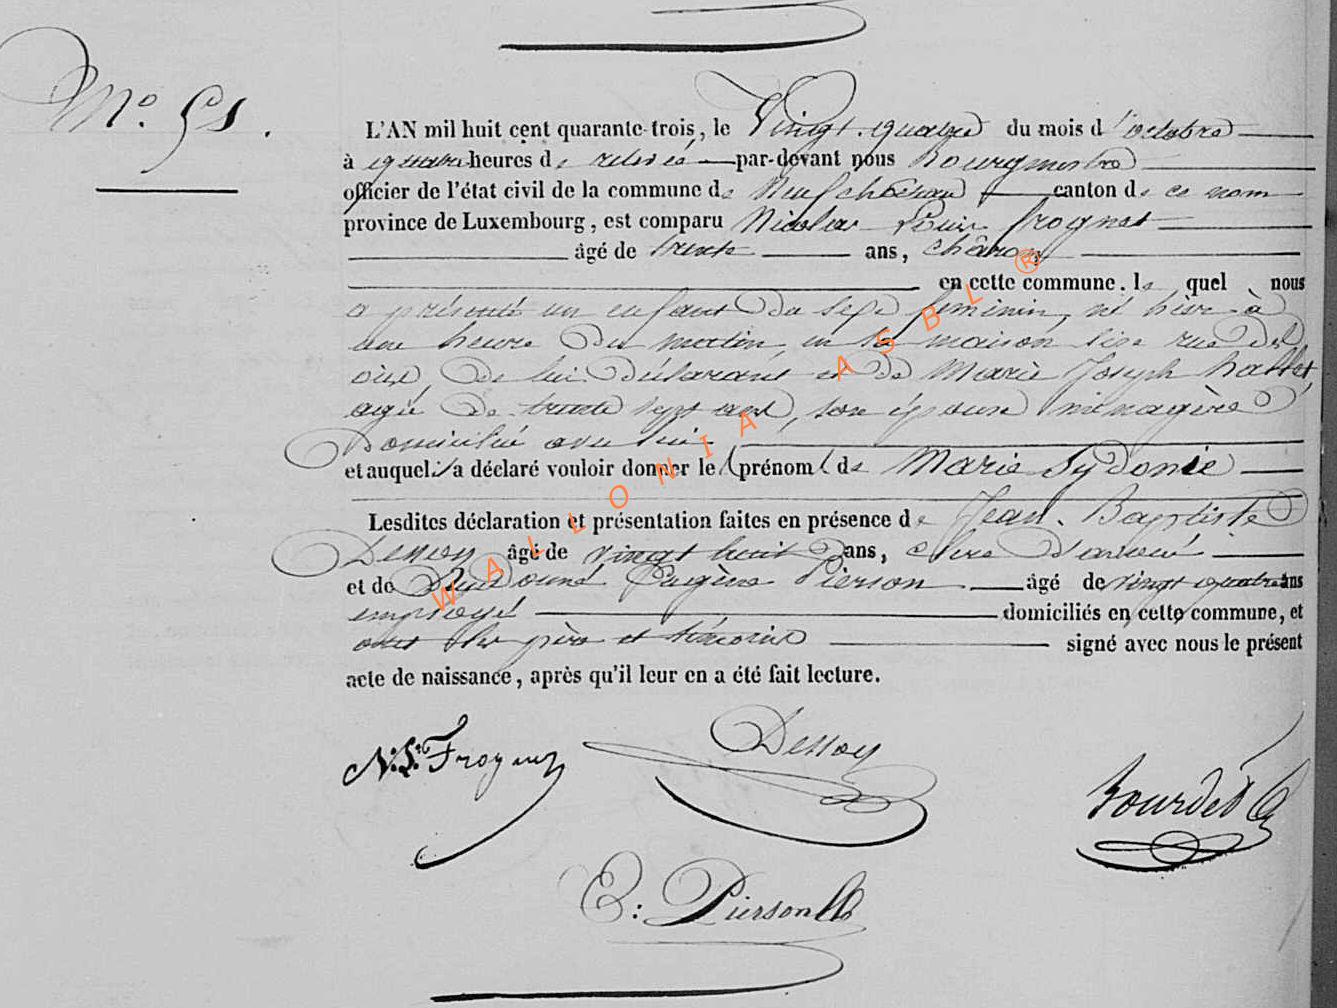 N.° 51.
L'AN mil huit cent quarante-trois, le Vingt-quatre du mois d'octobre
à quatre heures de relevée par-devant nous Bourgmestre
officier de l'état civil de la commune de Neufchâteau canton de ce nom
province de Luxembourg, est comparu Nicolas Louis Frognet
âgé de trente ans, charon
en cette commune. le quel nous
a présenté un enfant du sexe feminin, né hier à
une heure du matin, en sa maison sise rue de
de lui déclarant et de Marie Joseph
agée de trente sept ans, son épouse ménagère
Domiciliée avec lui
et auquel il a déclaré vouloir donner le prénom de Marie Sydonie
Lesdites déclaration et présentation faites en présence de Jean-Baptiste
Dessoy âgé de vingt huit ans, clerc d'avoué
et de Eugène Pierson âgé de vingt quatre ans
employé domiciliés en cette commune, et
ont les père et témoins signé avec nous le présent
acte de naissance, après qu'il leur en a été fait lecture.
N. L. Frognet
Dessoy
Bourdet
E: Pierson
WALLONIA ASBL ®